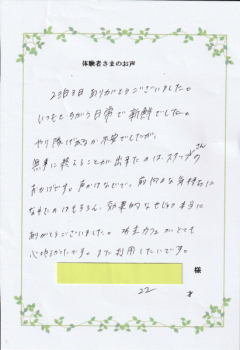 体験者さまのお声
2泊3日ありがとうございました。
いつもとちがう日常で新鮮でした。
やり遂げれるか不安でしたが、
無事に終えることが出来たのは、スタッフさんの
おかげです。声かけなどで、前向きな気持ちに
なれたのはもちろん、効果的なせいか本当に
ありがとうございました。坊主カフェがとても
心地よかったです。また利用したいです。
様
22 才